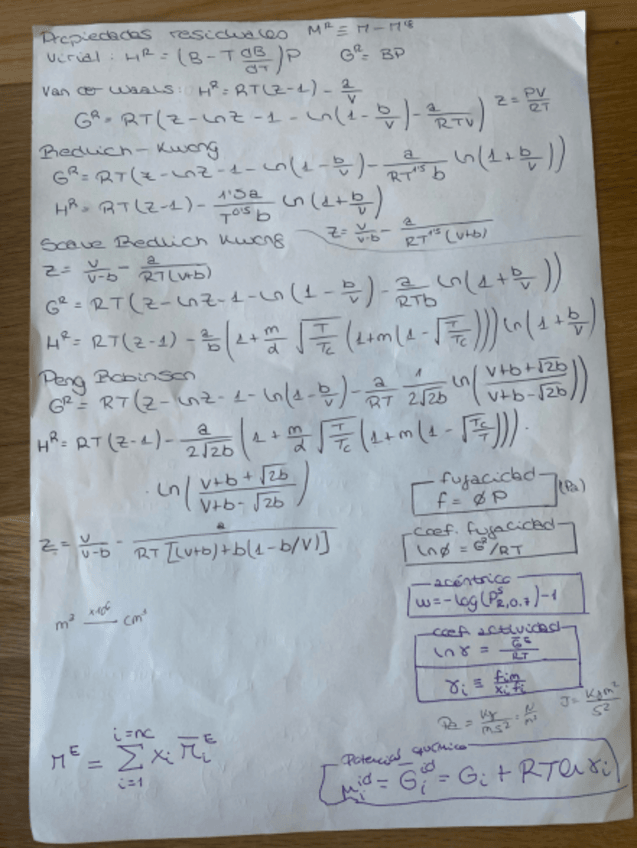 Propiedades residuales M^R ≡ M - M^gi
Virial: H^R = (B - T dB/dT)P G^R = BP
Van der Waals: H^R = RT(z-1) - a/v
G^R = RT(z - ln z - 1 - ln(1 - b/v) - a/RTV) z = PV/RT
Redlich-Kwong
G^R = RT(z - ln z - 1 - ln(1 - b/v) - a/RT^1'5 b ln(1 + b/v))
H^R = RT(z-1) - 1'5a/T^0'5 b ln(1 + b/v)
z = v/v-b - a/RT^1'5 (v+b)
Soave Redlich Kwong
z = v/v-b - a/RT(v+b)
G^R = RT(z - ln z - 1 - ln(1 - b/v) - a/RTb ln(1 + b/v))
H^R = RT(z-1) - a/b (1 + m/α √T/Tc (1+m(1 - √T/Tc))) ln(1 + b/v)
Peng Robinson
G^R = RT(z - ln z - 1 - ln(1 - b/v) - a/RT 1/2√2b ln(v+b+√2b/v+b-√2b))
H^R = RT(z-1) - a/2√2b (1 + m/α √T/Tc (1+m(1 - √Tc/T))).
· ln(v+b+√2b/v+b-√2b)
z = v/v-b - a/RT[(v+b)+b(1-b/v)]
fugacidad
f = ϕP (Pa)
coef. fugacidad
ln ϕ = G^R/RT
acéntrico
w = -log(P^s_R,0.7) - 1
m³ x10⁶ cm³
coef. actividad
ln γ = G^E/RT
γi ≡ fim/xi fi
Pa = kg/ms² = N/m² J = Kg m²/s²
M^E = Σ i=1 i=nc xi M̄i^E
Potencial químico
μi^id = Ḡi^id = Gi + RT ln xi